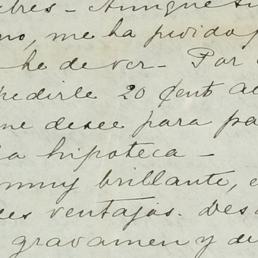 bres - Aunque su
no, me ha pedido
he de ver - Por
pedirle 20 Cent al
me desee para pa
la hipoteca -
muy brillante, e
des ventajas. Des
gravamen y de